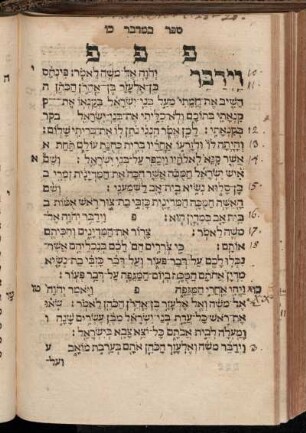 ספר במדבר כו
פ פ פ
וידבר יהוה אל־משה לאמר׃ פינחס
בן־אלעזר בן־אהרן הכהן
השיב את־חמתי מעל בני־ישראל בקנאו את־
קנאתי בתוכם ולא־כליתי את־בני־ישראל
בקנאתי׃ לכן אמר הנני נתן לו את־בריתי שלום׃
והיתה לו ולזרעו אחריו ברית כהנת עולם תחת
אשר קנא לאלהיו ויכפר על־בני ישראל׃ ושם
איש ישראל המכה אשר הכה את־המדינית זמרי
בן־סלוא נשיא בית־אב לשמעני׃ ושם
האשה המכה המדינית כזבי בת־צור ראש אמות
בית־אב במדין הוא׃ פ וידבר יהוה אל־
משה לאמר׃ צרור את־המדינים והכיתם
אותם׃ כי צררים הם לכם בנכליהם אשר־
נכלו לכם על־דבר פעור ועל־דבר כזבי בת־נשיא
מדין אחתם המכה ביום־המגפה על־דבר פעור׃
ויהי אחרי המגפה פ ויאמר יהוה
אל־משה ואל אלעזר בן־אהרן הכהן לאמר׃ שאו
את־ראש כל־עדת בני־ישראל מבן עשרים שנה
ומעלה לבית אבתם כל־יצא צבא בישראל׃
וידבר משה ואלעזר הכהן אתם בערבת מואב
על־